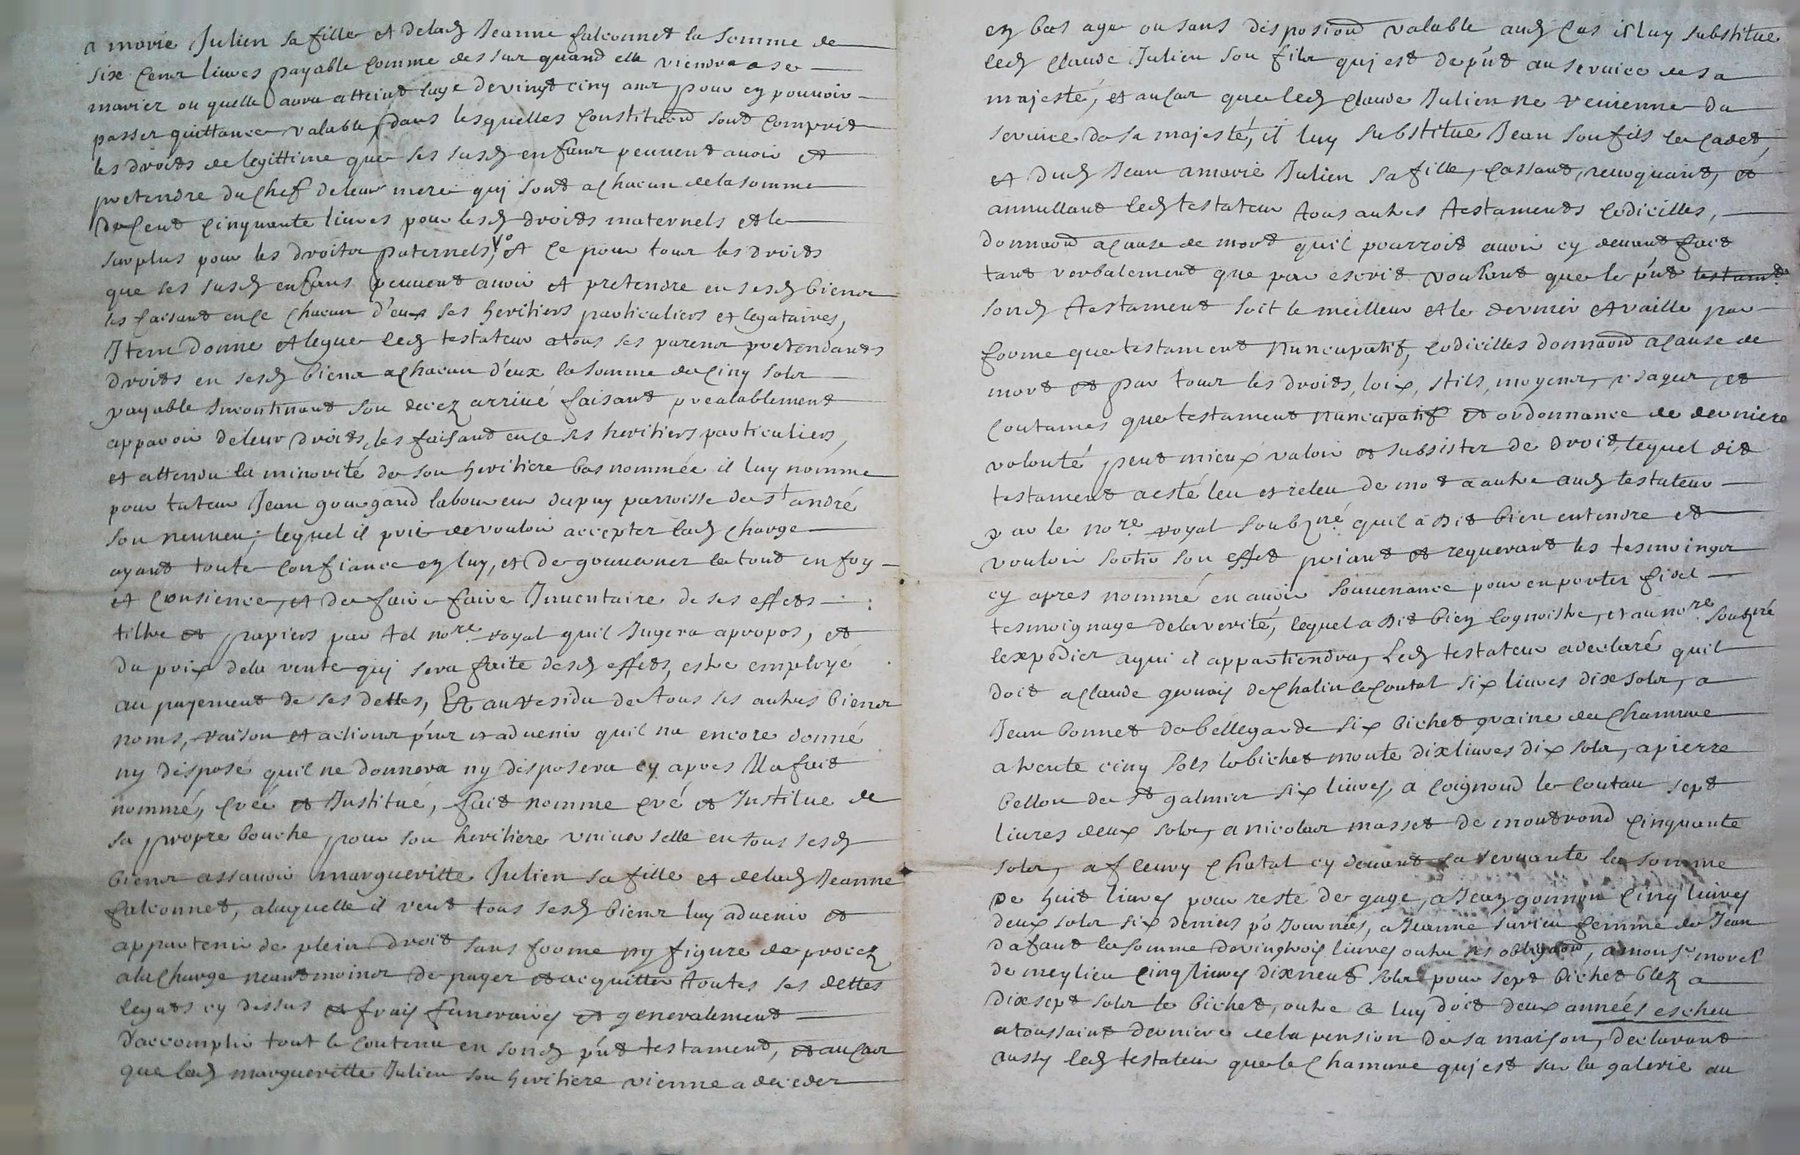 a marie Julien sa fille et delad Jeanne falconnet la somme de
six cens livres payable comme dessus quand elle viendra a se
marier ou quelle aura atteint lage de vingt cinq ans pour en pouvoir
passer quittance valable, dans lesquelles constituōn sont compris
les droits de legittime que ses susd enfans peuvent avoir et
pretendre du chef de leur mere quj sont a chacun de la somme
de cent cinquante livres pour lesd droits maternels et le
surplus pour les droits paternels, et ce pour tous les droits
que ses susd enfans peuvent avoir et pretendre en sesd biens
les faisant en ce chacun d'eux ses heritiers particuliers et legataires,
Item donne et legue led testateur a tous ses parens pretendants
droits en sesd biens a chacun d'eux la somme de cinq sols
payable Incontinant son decez arrivé faisant prealablement
apparoir de leur droits, les faisant en ce ses heritiers particuliers,
et attendu la minorité de son heritiere bas nommée il luy nomme
pour tuteur Jean gourgaud laboureur du puy parroisse de st andré
son neuveu, lequel il prie de vouloir accepter lad charge
ayant toute confiance en luy, et de gouverner le tout en foy
et consience, et de faire faire Inventaire de ses effets
tiltre et papiers par tel nore royal quil Jugera apropos, et
du prix dela vente quj sera faite desd effets, estre employé
au payement de ses dettes, Et au residu de tous ses autres biens
noms, raison et actions pñs et advenir quil na encore donné
ny disposé quil ne donnera ny disposera cy apres Il a fait
nommé, creé et Institué, fait nomme creé et Institue de
sa propre bouche pour son heritiere universelle en tous sesd
biens assavoir margueritte Julien sa fille et delad Jeanne
falconnet, alaquelle il veut tous sesd biens luy advenir et
appartenir de plein droit sans forme ny figure de procez
ala charge neantmoins de payer et acquitter toutes ses dettes
legats cy dessus et frais funeraires et generalement
D'accomplir tout le contenu en sond pñt testament, et au cas
que lad margueritte Julien son heritiere vienne a deceder
en bas age ou sans disposiōn valable aud cas il luy substitue
led claude Julien son fils quj est de pñt au service de sa
majesté, et au cas que led claude Julien ne vienne du
service de sa majesté, il luy substitue Jean son fils le cadet,
et dud Jean a marie Julien sa fille, cassant, revoquant, et
annullant led testateur tous autres testaments codicilles,
donnaōn a cause de mort quil pourroit avoir cy devant fait
tant verbalement que par escrit voulant que le pñt testamt
sond testament soit le meilleur et le dernier et vaille par
forme que testament nuncupatif, codicilles donnaōn a cause de
mort et par tous les droits, loix, stils, moyens, usages, et
coutumes que testament nuncupatif et ordonnance de derniere
volonté peut mieux valoir et subsister de droit, lequel dit
testament a esté leu et releu de mot a autre aud testateur
par le nore royal soubzné quil a dit bien entendre et
vouloir sortir son effet priant et requerant les tesmoings
cy apres nommé en avoir souvenance pour en porter fidel
tesmoignage dela verité, lequel a dit bien cognoistre, et au nore soubzné
lexpedier a qui il appartiendra, Led testateur a declaré quil
doit a claude gervais de chalin le coutal six livres dix sols, a
Jean bonnet de bellegarde six bichet graine de chamure
a trente cinq sols le bichet monte dix livres dix sols, a pierre
bellon de st galmier six livres, a coignoud le coutau sept
livres deux sols, a nicolas masset de montrond cinquante
sols, a fleury chatal cy devant sa servante la somme
De huit livres pour reste de gage, a Jean gonnon cinq livres
deux sols six deniers pr Journées, a Jeanne femme de Jean
dafaut la somme de vingt trois livres outre ses obligaōn, a monsr morel
de meylieu cinq livres dix neuf sols pour sept bichet blez a
dix sept sols le bichet, outre ce luy doit deux années escheu
a toussaint derniere dela pension de sa maison, declarant
aussy led testateur que le chamure quj est sur la galerie au